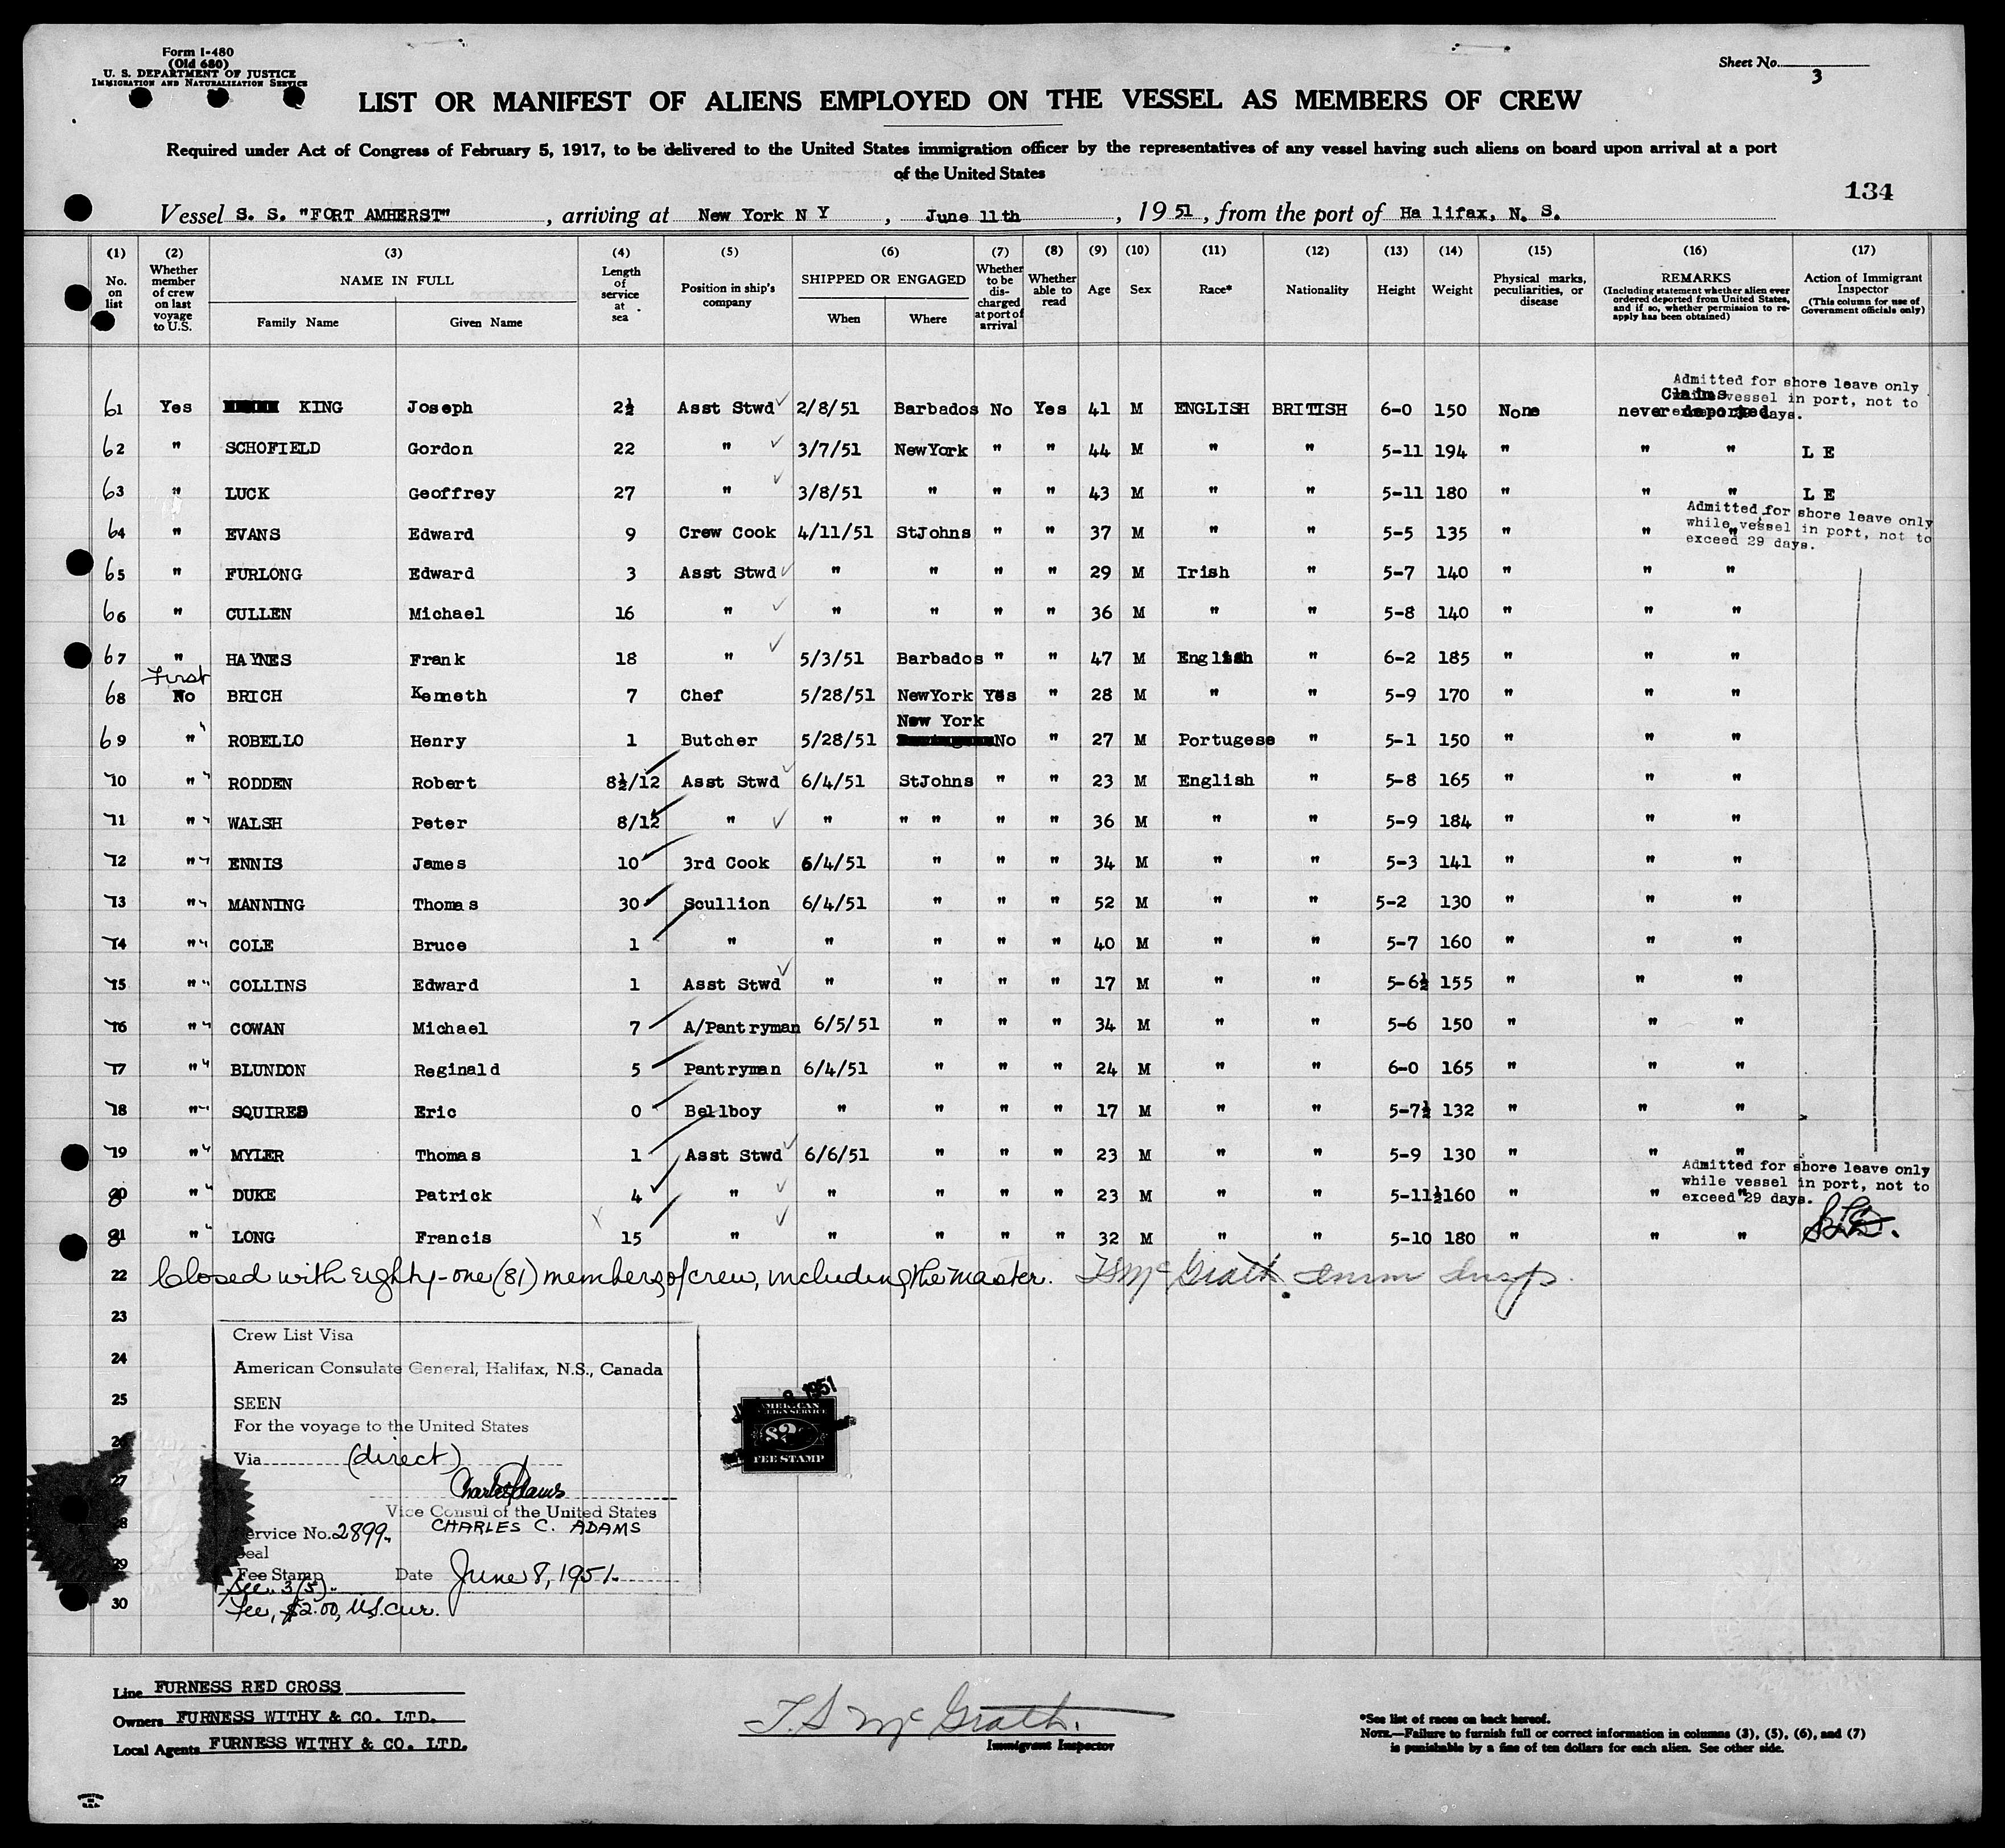 Form I-480
(Old 680)
U. S. DEPARTMENT OF JUSTICE
IMMIGRATION AND NATURALIZATION SERVICE
Sheet No. 3
LIST OR MANIFEST OF ALIENS EMPLOYED ON THE VESSEL AS MEMBERS OF CREW
Required under Act of Congress of February 5, 1917, to be delivered to the United States immigration officer by the representatives of any vessel having such aliens on board upon arrival at a port
of the United States
134
Vessel S. S. "FORT AMHERST", arriving at New York N Y, June 11th, 19 51, from the port of Ha lifax, N. S.
(1) No. on list (2) Whether member of crew on last voyage to U.S. (3) NAME IN FULL Family Name Given Name (4) Length of service at sea (5) Position in ship's company (6) SHIPPED OR ENGAGED When Where (7) Whether to be dis-charged at port of arrival (8) Whether able to read (9) Age (10) Sex (11) Race* (12) Nationality (13) Height (14) Weight (15) Physical marks, peculiarities, or disease (16) REMARKS (Including statement whether alien ever ordered deported from United States, and if so, whether permission to re-apply has been obtained) (17) Action of Immigrant Inspector (This column for use of Government officials only)
Admitted for shore leave only
vessel in port, not to
days.
61 Yes KING Joseph 2½ Asst Stwd 2/8/51 Barbados No Yes 41 M ENGLISH BRITISH 6-0 150 None Claims never deported
62 " SCHOFIELD Gordon 22 " 3/7/51 NewYork " " 44 M " " 5-11 194 " " " L E
63 " LUCK Geoffrey 27 " 3/8/51 " " " 43 M " " 5-11 180 " " " L E
Admitted for shore leave only
while vessel in port, not to
exceed 29 days.
64 " EVANS Edward 9 Crew Cook 4/11/51 StJohns " " 37 M " " 5-5 135 " " "
65 " FURLONG Edward 3 Asst Stwd " " " " 29 M Irish " 5-7 140 " " "
66 " CULLEN Michael 16 " " " " " 36 M " " 5-8 140 " " "
67 " HAYNES Frank 18 " 5/3/51 Barbados " " 47 M English " 6-2 185 " " "
First
68 No BRICH Kenneth 7 Chef 5/28/51 NewYork Yes " 28 M " " 5-9 170 " " "
New York
69 " ROBELLO Henry 1 Butcher 5/28/51 No " 27 M Portugese " 5-1 150 " " "
70 " RODDEN Robert 8½/12 Asst Stwd 6/4/51 StJohns " " 23 M English " 5-8 165 " " "
71 " WALSH Peter 8/12 " " " " " " 36 M " " 5-9 184 " " "
72 " ENNIS James 10 3rd Cook 6/4/51 " " " 34 M " " 5-3 141 " " "
73 " MANNING Thomas 30 Scullion 6/4/51 " " " 52 M " " 5-2 130 " " "
74 " COLE Bruce 1 " " " " " 40 M " " 5-7 160 " " "
75 " COLLINS Edward 1 Asst Stwd " " " " 17 M " " 5-6½ 155 " " "
76 " COWAN Michael 7 A/Pantryman 6/5/51 " " " 34 M " " 5-6 150 " " "
77 " BLUNDON Reginald 5 Pantryman 6/4/51 " " " 24 M " " 6-0 165 " " "
78 " SQUIRES Eric 0 Bellboy " " " " 17 M " " 5-7½ 132 " " "
79 " MYLER Thomas 1 Asst Stwd 6/6/51 " " " 23 M " " 5-9 130 " " "
Admitted for shore leave only
while vessel in port, not to
exceed 29 days.
80 " DUKE Patrick 4 " " " " " 23 M " " 5-11½ 160 " " "
81 " LONG Francis 15 " " " " " 32 M " " 5-10 180 " " "
22 Closed with eighty-one (81) members of crew, including the master. T S McGrath
23
Crew List Visa
24
American Consulate General, Halifax, N.S., Canada
25
SEEN
For the voyage to the United States
26
Via (direct)
27
Charles C Adams
Vice Consul of the United States
28
CHARLES C. ADAMS
Service No. 2899.
Seal
29
Fee Stamp Date June 8, 1951.
30
Fee, $2.00, U.S. cur.
8 1951
AMERICAN
FOREIGN SERVICE
$2
FEE STAMP
Line FURNESS RED CROSS
Owners FURNESS WITHY & CO. LTD.
Local Agents FURNESS WITHY & CO. LTD.
T. S McGrath.
Immigrant Inspector
*See list of races on back hereof.
NOTE.—Failure to furnish full or correct information in columns (3), (5), (6), and (7)
is punishable by a fine of ten dollars for each alien. See other side.
PRINTED IN U.S.A.